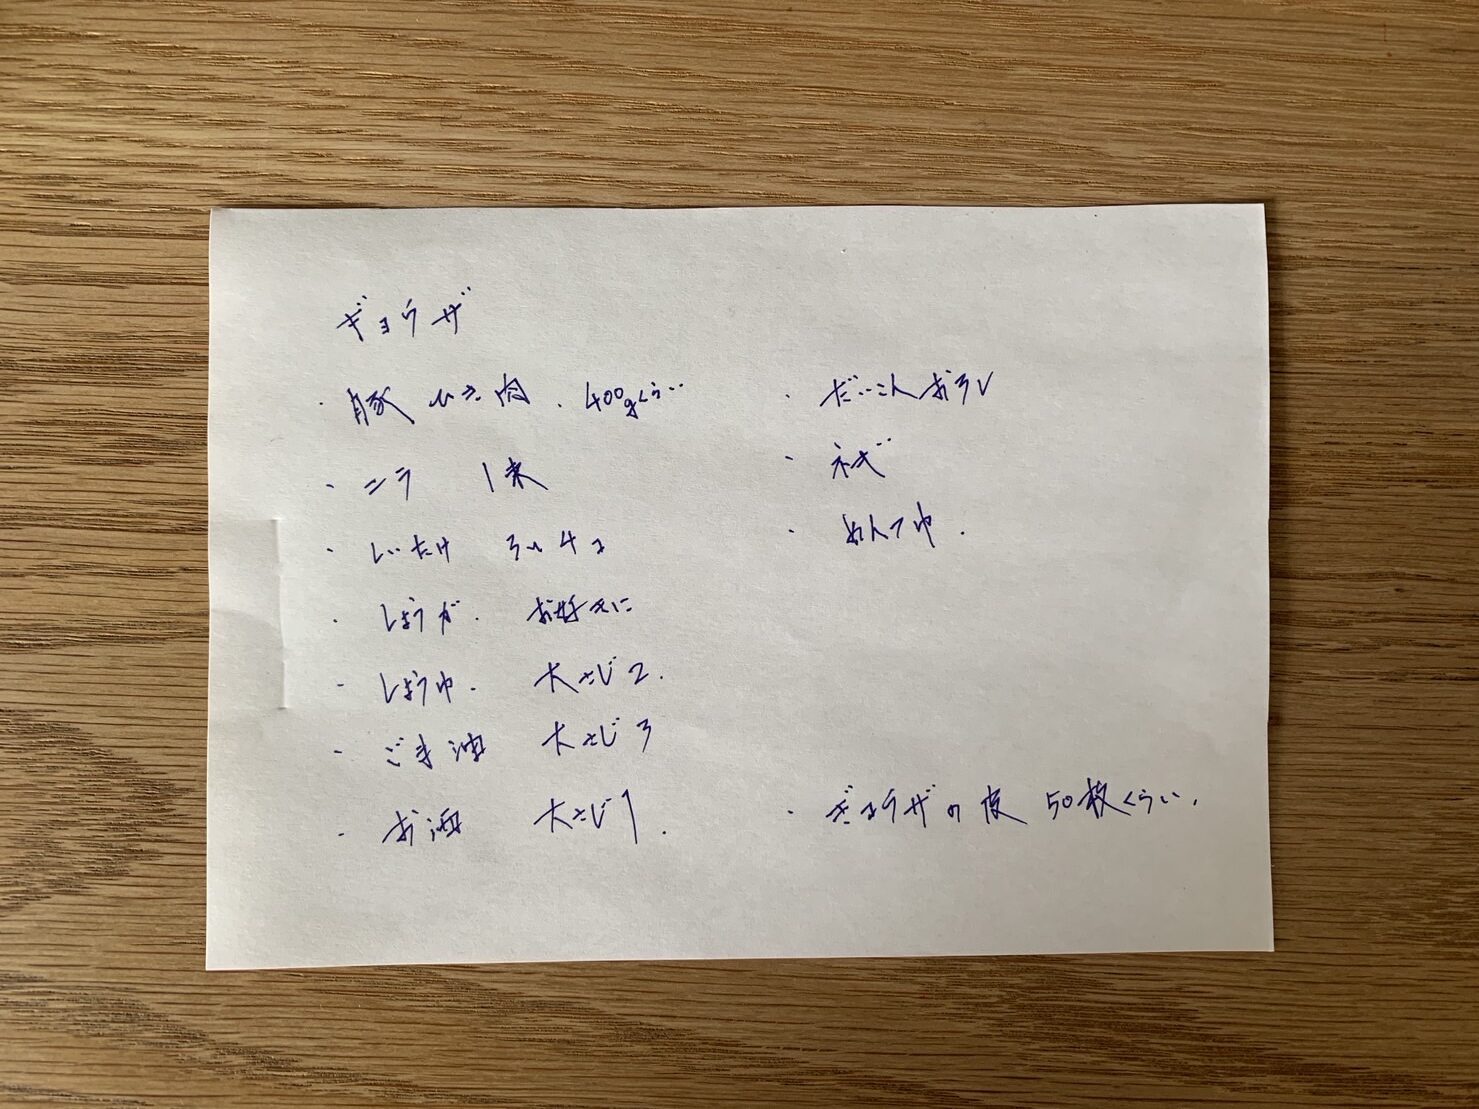 ギョウザ
・豚ひき肉. 400gくらい
・ニラ 1束
・しいたけ 3〜4コ
・しょうが. お好きに
・しょうゆ. 大さじ2.
・ごま油 大さじ3
・お酒 大さじ1.
・だいこんおろし
・ネギ
・めんつゆ.
・ぎょうザの皮 50枚くらい.